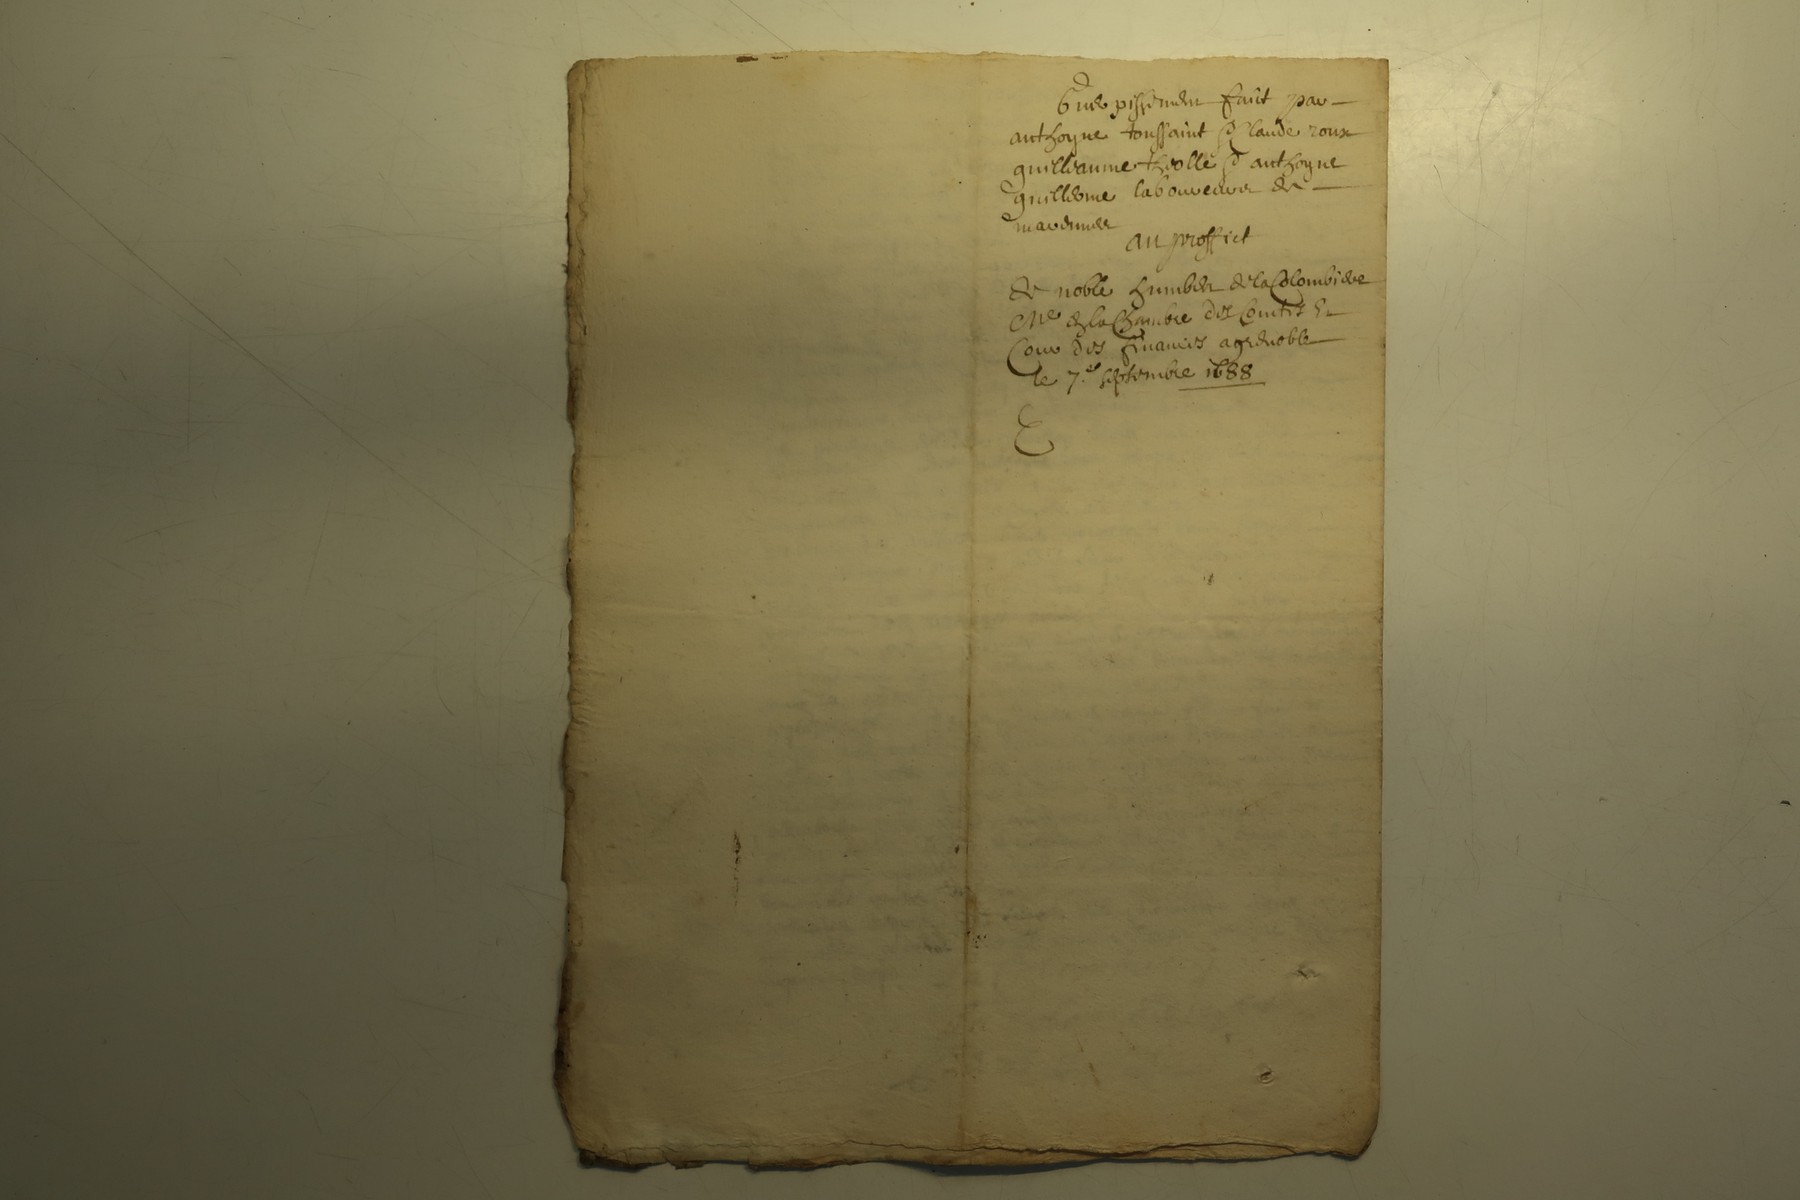 Guerpissement faict par
anthoyne toussaint Claude roux
guilleaume theolle & anthoyne
guillerme laboureurs de
au proffict
de noble humbert de la Colombiere
Me de la Chambre des Comtes Et
Cour des finances a grenoble
le 7.e septembre 1688